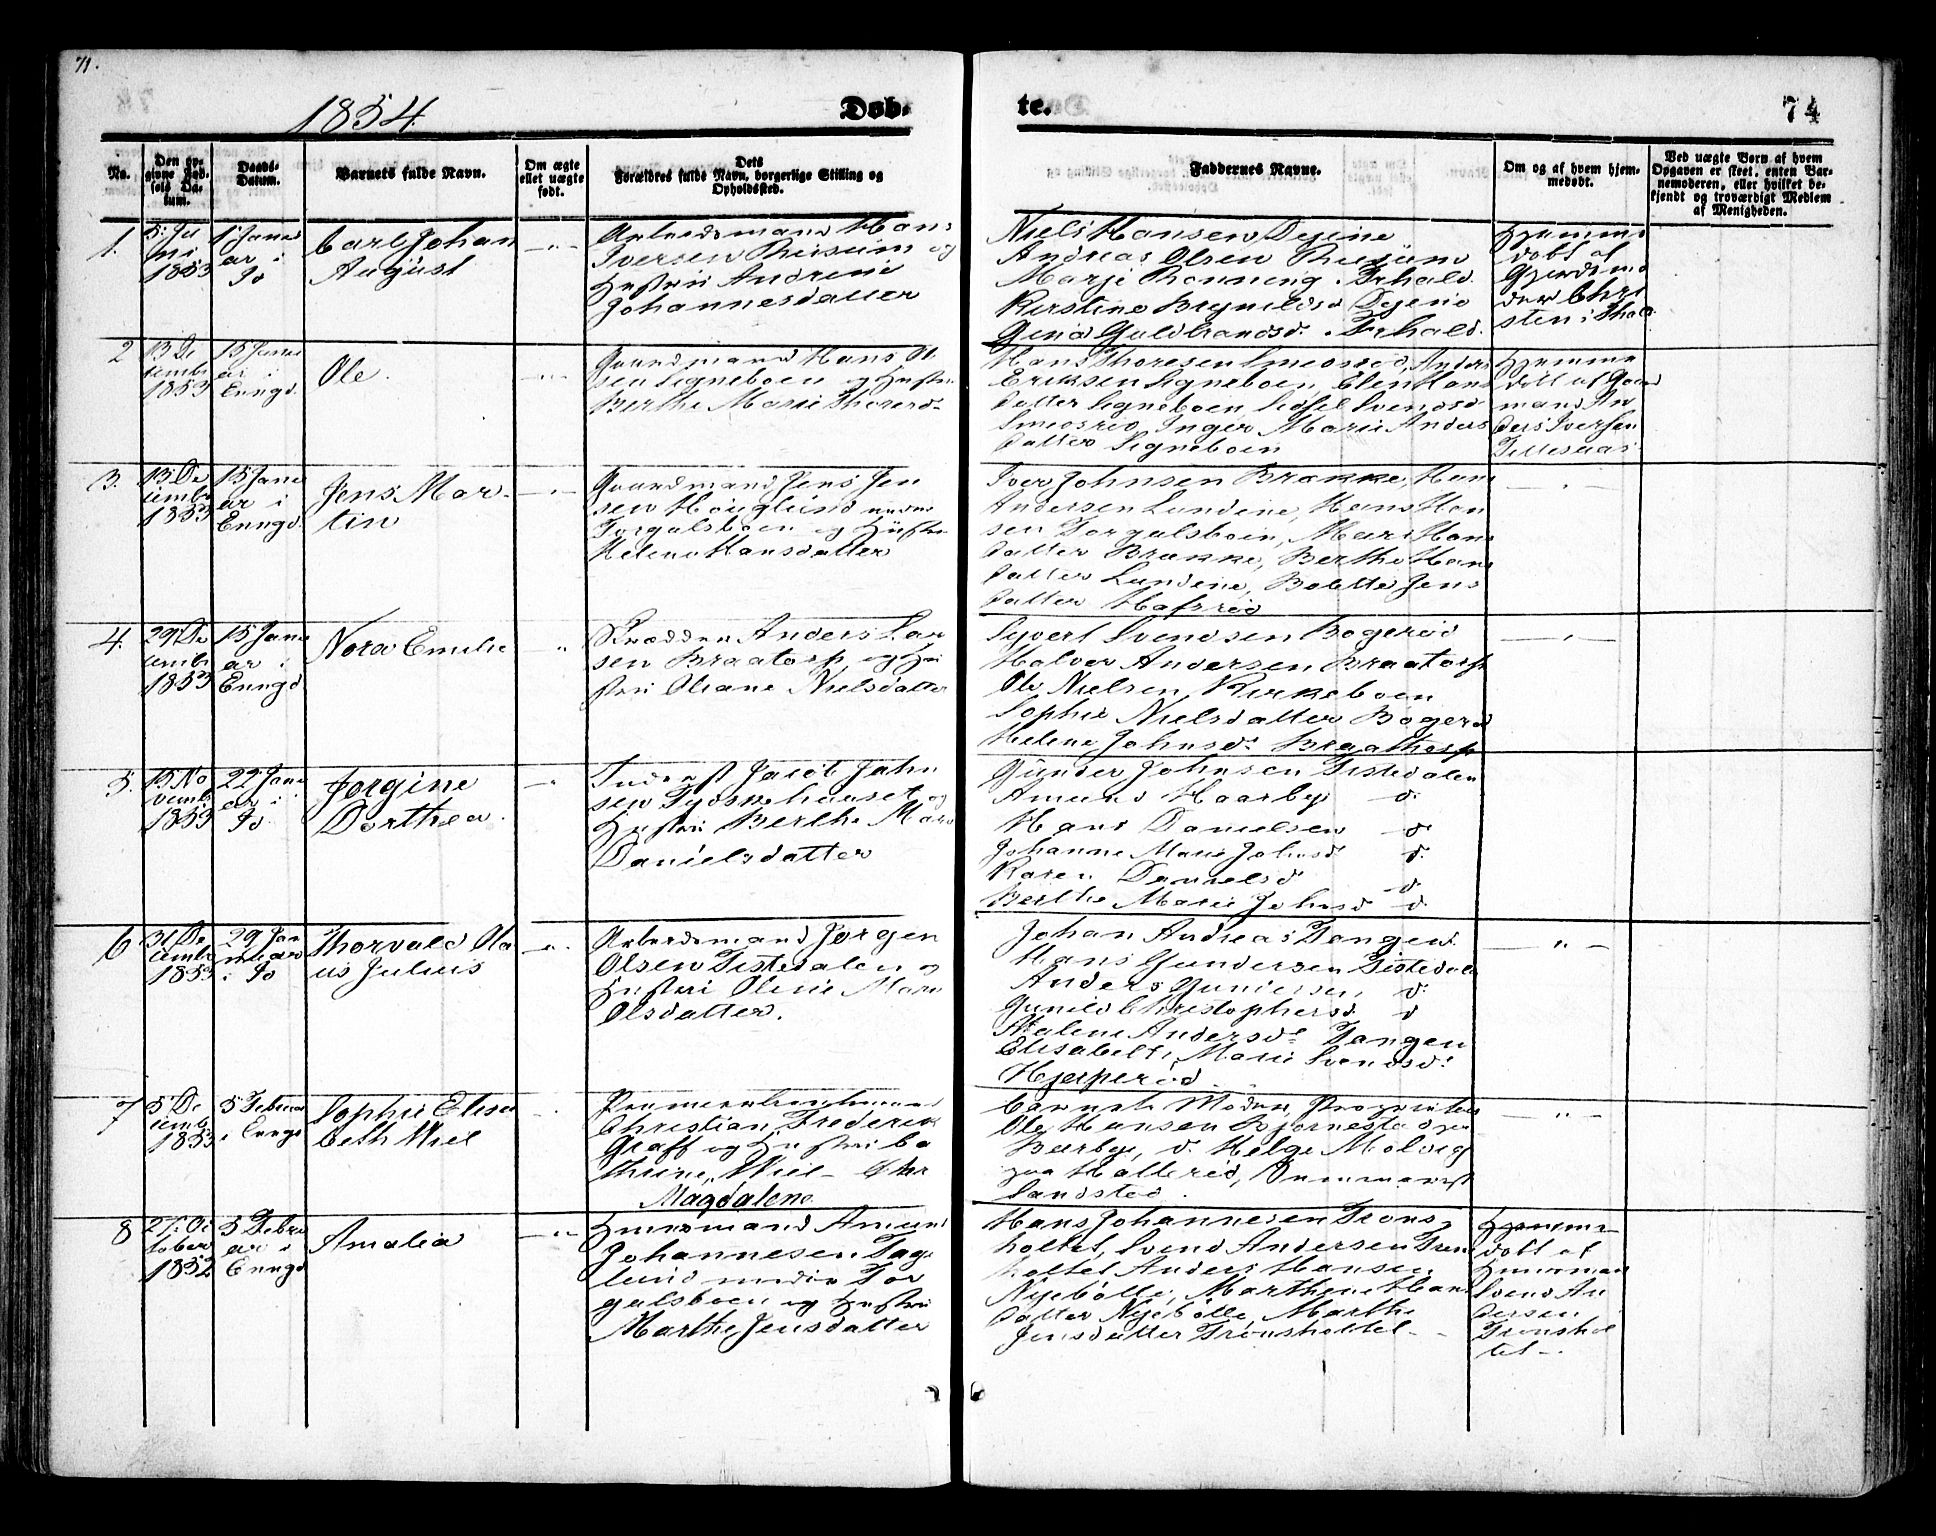 71.
1854.
Døb-
te.
74
No.
Den opgivne Fødsels Datum.
Daabs-Datum.
Barnets fulde Navn.
Om ægte eller uægte født.
Dets Forældres fulde Navn, borgerlige Stilling og Opholdssted.
Faddernes Navne.
Om og af hvem hjemmedøbt.
Ved uægte Børn af hvem Opgaven er skeet, enten Barnemoderen, eller hvilket bekjendt og troværdigt Medlem af Menigheden.
1.
1853
ar i
Carl Johan
August
Arbeidsmand Hans
Iversen Riisum og
Hustru Andrine
Johannesdatter
Niels Hansen
Andreas Olsen Riisum
Marje Rønning
Kirstine
Hjemme
døbt af
sten i
2
13 De
cembr
1853
15 Janu
ar i
Enngd.
Ole.
Gaardmand Hans Ol
sen Signeboen og Hustru
Berthe Marie Thoresd.
Hans Thoresen Smeosrød, Anders
Eriksen Signeboen, Elen Hans
datter Signeboen Sidsel Svendsd
Smeosrød, Inger Marie Anders
datter Signeboen
Hjemme
døbt af Gaard
mand An
ders Iversen
3.
13 De
cembr
1853
15 Janu
ar i
Enngd.
Jens Mar-
tin
Gaardmand Jens Jen
sen Høuglund nedre
Torgalsboen og Hustru
Helene Hansdatter
Iver Johnsen Brække, Hans
Andersen Lundene, Hans Han
sen Torgalsboen, Mari Hans
datter Brække, Berthe Hans
datter Lundene, Bolette Jens
datter Hafsrød
4.
29 De
cembr
1853
15 Janu
ar i
Enngd
Nora Emilie
Skrædder Anders Lar
sen Braatorp, og Hu
stru Oliane Nielsdatter
Syvert Svendsen Bøgerød
Halvor Andersen Braatorp
Ole Nielsen Kirkeboen
Sophie Nielsdatter Bøgerød
Helene Johnsd. Braathorp
5.
15 No
vembr
1853
22 Janu
ar i
Jørgine
Dorthea.
Inderst Jacob Jahn
sen Tydskehauset og
Hustru Berthe Mari
Danielsdatter
Gunder Johnsen Tistedalen
Amund Haarby d.
Hans Danielsen d.
Johanne Marie Johnsd d.
Karen Danielsd d.
Berthe Marie Johnsd d.
6
31 De
cembr
1853
29 Jan
nuar
Thorvald Ola
us Julius
Arbeidsmand Jørgen
Olsen Tistedalen og
Hustru Oline Mari
Olsdatter.
Johan Andreas Tangen
Hans Gundersen Tistedalen
Anders Gundersen d.
Gunild Christophersd d
Malene Andersd. Tangen
Elisabeth Marie Svendsd.
Hjerperød
7
5 De
cembr
1853
5 Februar
i Enngd
Sophie Elisa
beth Wiel
Premierlieutenant
Christian Frederik
Graff og Hustru Ca
thrine Wiel
Magdalene
Barnets Moder, Proprietær
Ole Hansen Bjørnestad
Berby, d. Helge Molvig
paa Hallerød,
Sandsted.
8
27. Oc
tober
1852
5 Febru
ar i
Enngd
Amalia
Huusmand Amund
Johannesen Tage
lund nedre Tor
galsboen og Hustru
Marthe Jensdatter
Hans Johannesen Trøns
holtet, Svend Andersen Trøns
holtet Anders Hansen
Nyebølle, Marthe Hans
datter Nyebølle Marthe
Jensdatter Trønsholtet
Hjemme-
døbt af
Huusmand
Svend An
dersen
Trønshol
tet.